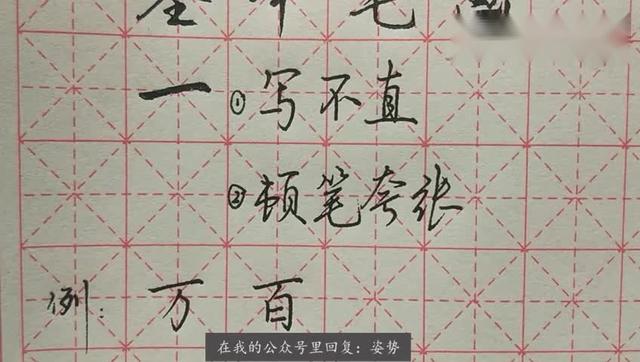 一 ①写不直
②顿笔夸张
例：万 百
在我的公众号里回复：姿势